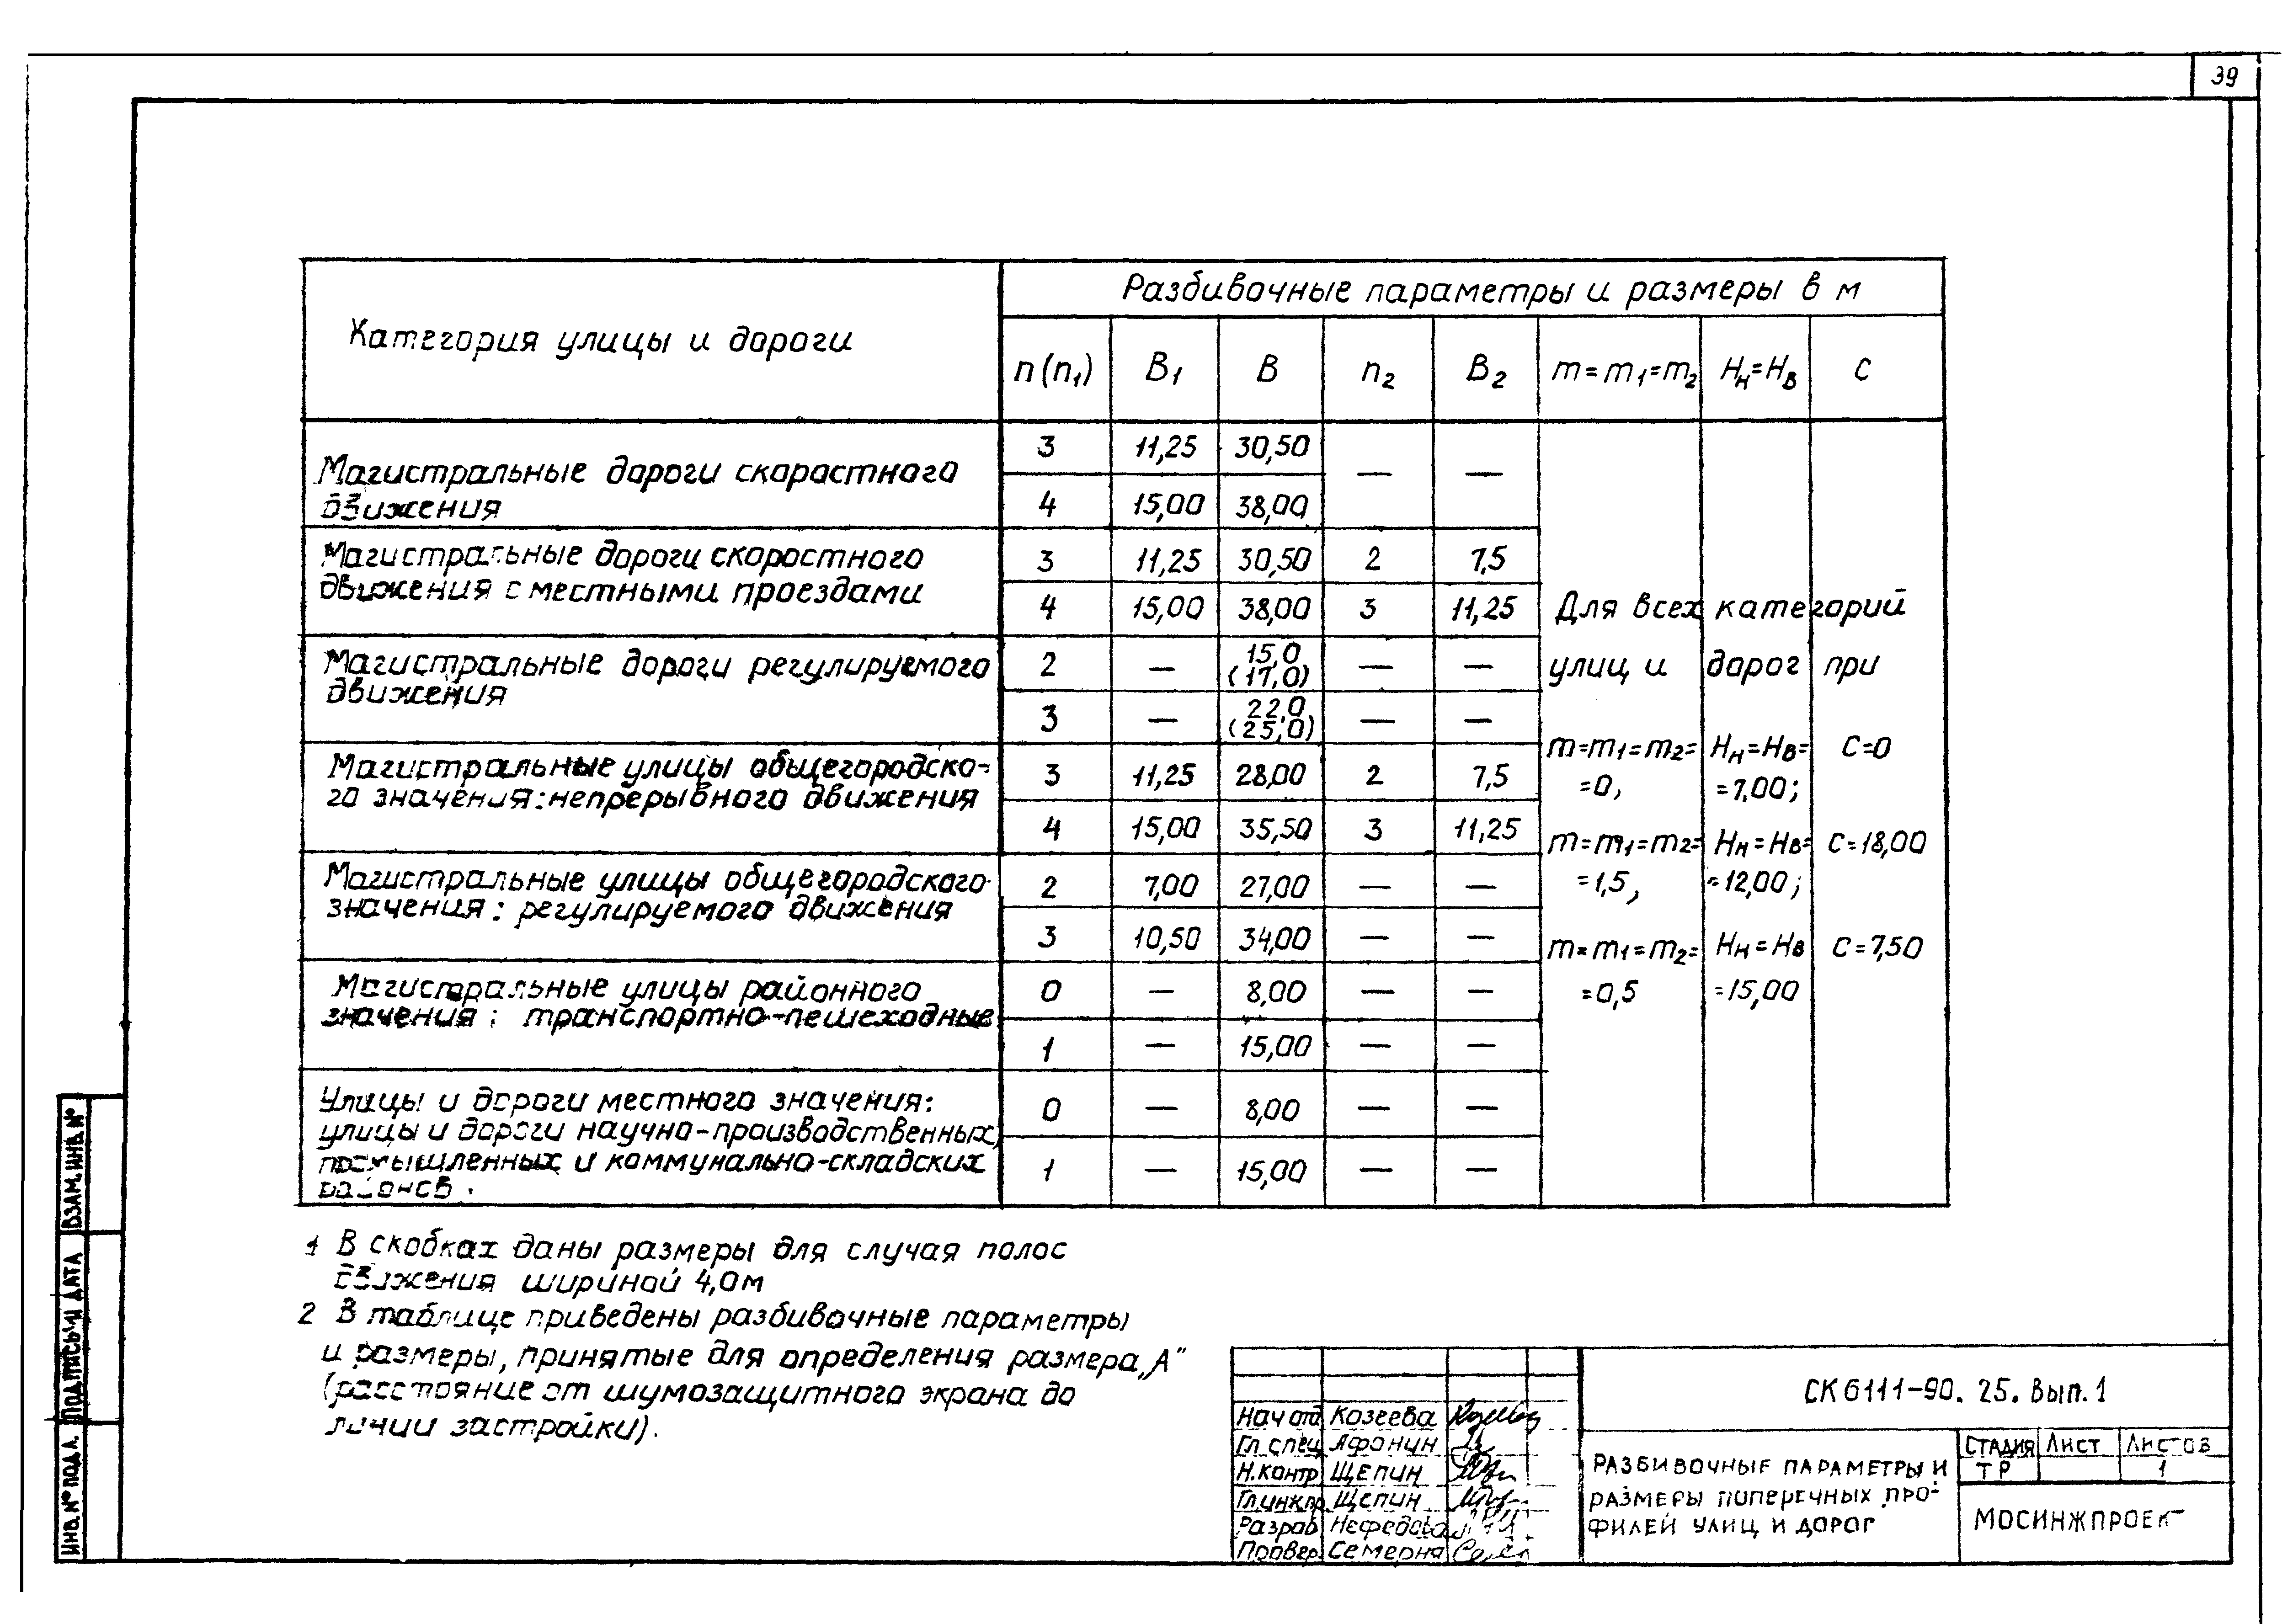 39
Категория улицы и дороги
Разбивочные параметры и размеры в м
n (n₁) B₁ B n₂ B₂ m=m₁=m₂ Hн=Hв C
Магистральные дороги скорастного
движения
3 11,25 30,50 — —
4 15,00 38,00
Магистральные дороги скоростного
движения с местными проездами
3 11,25 30,50 2 7,5
4 15,00 38,00 3 11,25
Магистральные дороги регулируемого
движения
2 — 15,0 (17,0) — —
3 — 22,0 (25,0) — —
Магистральные улицы общегородско-
го значения: непрерывного движения
3 11,25 28,00 2 7,5
4 15,00 35,50 3 11,25
Магистральные улицы общегородского
значения: регулируемого движения
2 7,00 27,00 — —
3 10,50 34,00 — —
Магистральные улицы районного
значения: транспортно-пешеходные
0 — 8,00 — —
1 — 15,00 — —
Улицы и дороги местного значения:
улицы и дороги научно-производственных,
промышленных и коммунально-складских
районов.
0 — 8,00 — —
1 — 15,00 — —
Для всех категорий
улиц и дорог при
m=m₁=m₂= Hн=Hв= C=0
=0, =7,00;
m=m₁=m₂= Hн=Hв= C=18,00
=1,5, =12,00;
m=m₁=m₂= Hн=Hв C=7,50
=0,5 =15,00
1 В скобках даны размеры для случая полос
движения шириной 4,0м
2 В таблице приведены разбивочные параметры
и размеры, принятые для определения размера „А"
(расстояние от шумозащитного экрана до
линии застройки).
СК 6111-90. 25. Вып. 1
Нач отд Козеева
Гл. спец Афонин
Н.контр Щепин
Гл.инж.пр Щепин
Разраб Нефедова
Провер. Семерня
РАЗБИВОЧНЫЕ ПАРАМЕТРЫ И
РАЗМЕРЫ ПОПЕРЕЧНЫХ ПРО-
ФИЛЕЙ УЛИЦ И ДОРОГ
СТАДИЯ Лист Листов
ТР 1
МОСИНЖПРОЕКТ
ИНВ.№ ПОДЛ. ПОДПИСЬ И ДАТА ВЗАМ.ИНВ.№